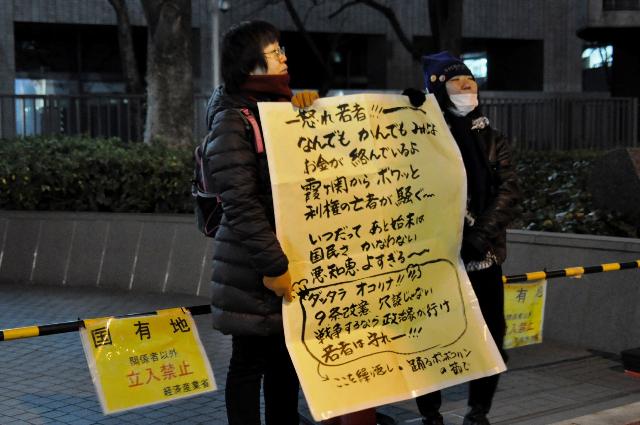 怒れ若者!!!
なんでも かんでも みんな
お金が 絡んでいるよ
霞ヶ関から ボワッと
利権の亡者が騒ぐ〜
いつだって あと始末は
国民さ かなわない
悪知恵 よすぎる〜
ダッタラ オコリナ!!
9条改悪 冗談じゃない
戦争するなら 政治家が行け
若者は守れー!!!
ここを繰返し。踊るポンポコリン
の節で
国有地
関係者以外
立入禁止
経済産業省
立入禁止